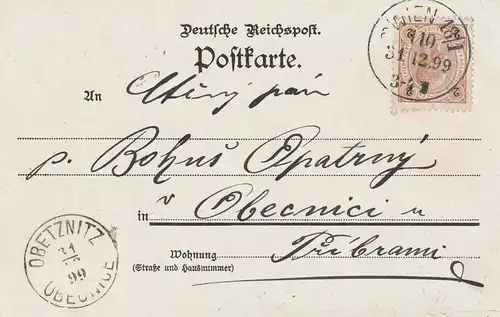 Deutsche Reichspost.
Postkarte.
WIEN
10
31.12.99
An Ctěný pán
p. Bohuš Opatrný
v
in Obecnici u
Wohnung Příbrami
(Straße und Hausnummer)
OBETZNITZ
31
99
OBECNICE